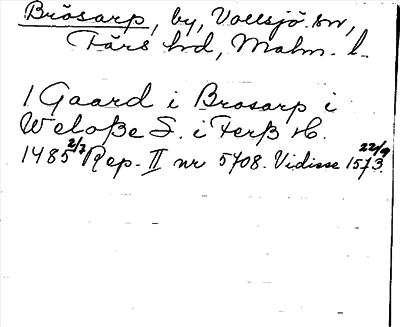 Brösarp, by, Vollsjö sn,
Färs hd, Malm. l.
1 Gaard i Brosarp i
Weloße S. i Ferß H.
1485 2/7 Rep. II nr 5708. Vidisse 1573 22/9.